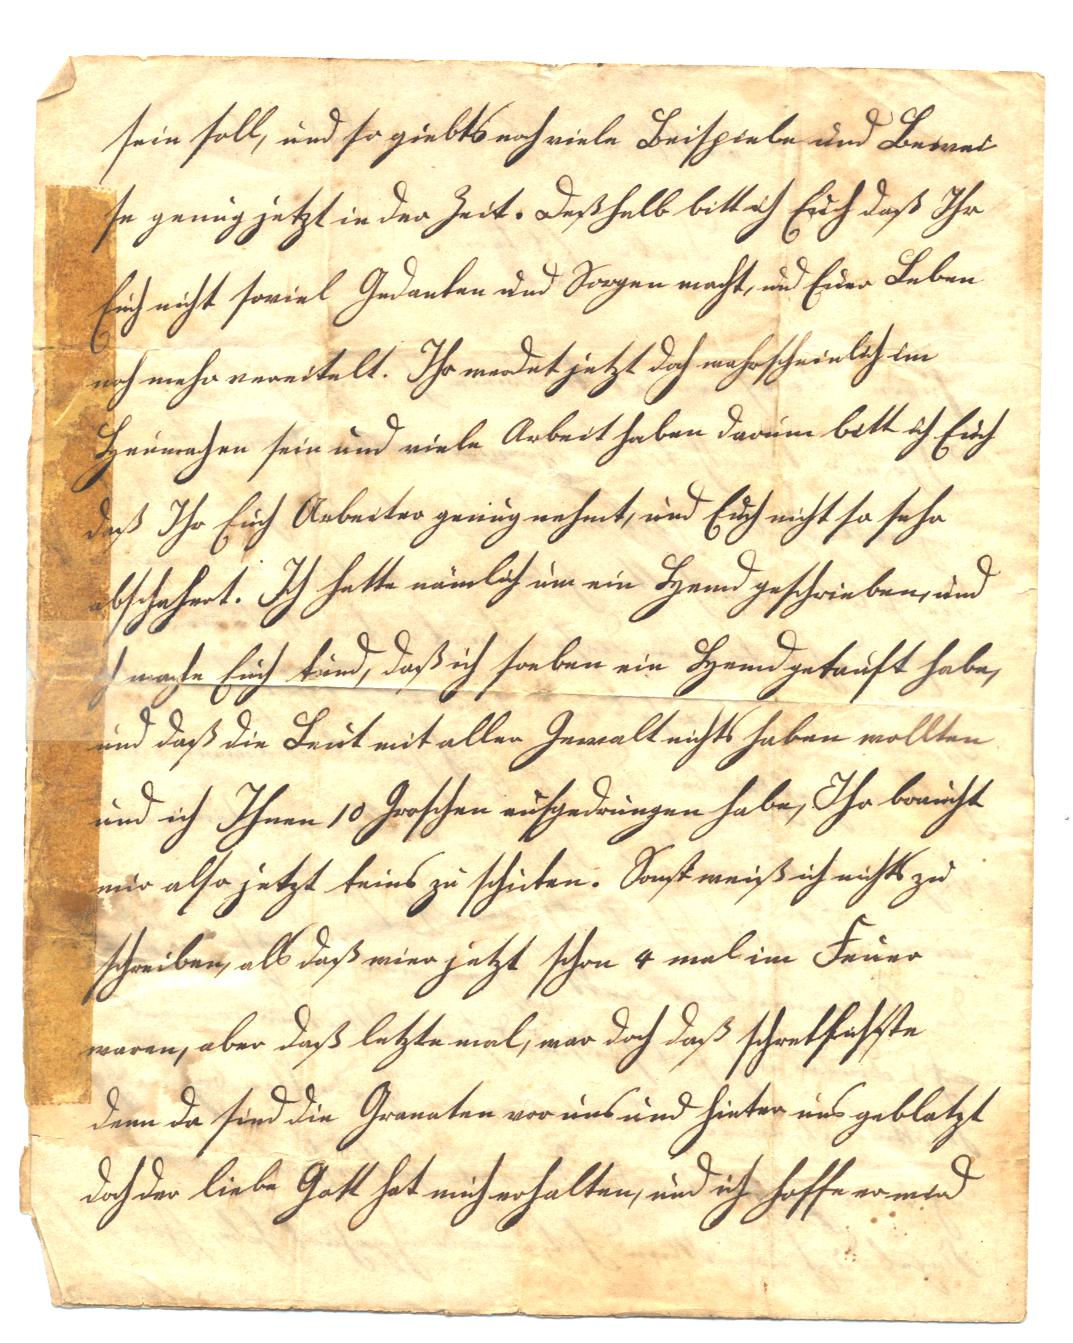 sein soll, und so giebts noch viele Beispiele und Bewei
se genug jetzt in der Zeit. Deßhalb bitt ich Euch daß Ihr
Euch nicht soviel Gedanken und Sorgen macht, und Euer Leben
noch mehr vereitelt. Ihr werdet jetzt doch wahrscheinlich im
Heumachen sein und viele Arbeit haben darum bitt ich Euch
daß Ihr Euch Arbeiter genug nehmt, und Euch nicht so sehr
abschehert. Ich hatte nämlich um ein Hemd geschrieben, und
ich mache Euch kund, daß ich soeben ein Hemd gekauft habe,
und daß die Leut mit aller Gewalt nichts haben wollten
und ich Ihnen 10 Groschen aufgedrungen habe, Ihr braucht
mir also jetzt keins zu schicken. Sonst weiß ich nichts zu
schreiben, als daß wier jetzt schon 4 mal im Feuer
waren, aber daß letzte mal, war doch daß schreklichste
denn da sind die Granaten vor uns und hinter uns geblatzt
doch der liebe Gott hat mich erhalten, und ich hoffe er wird